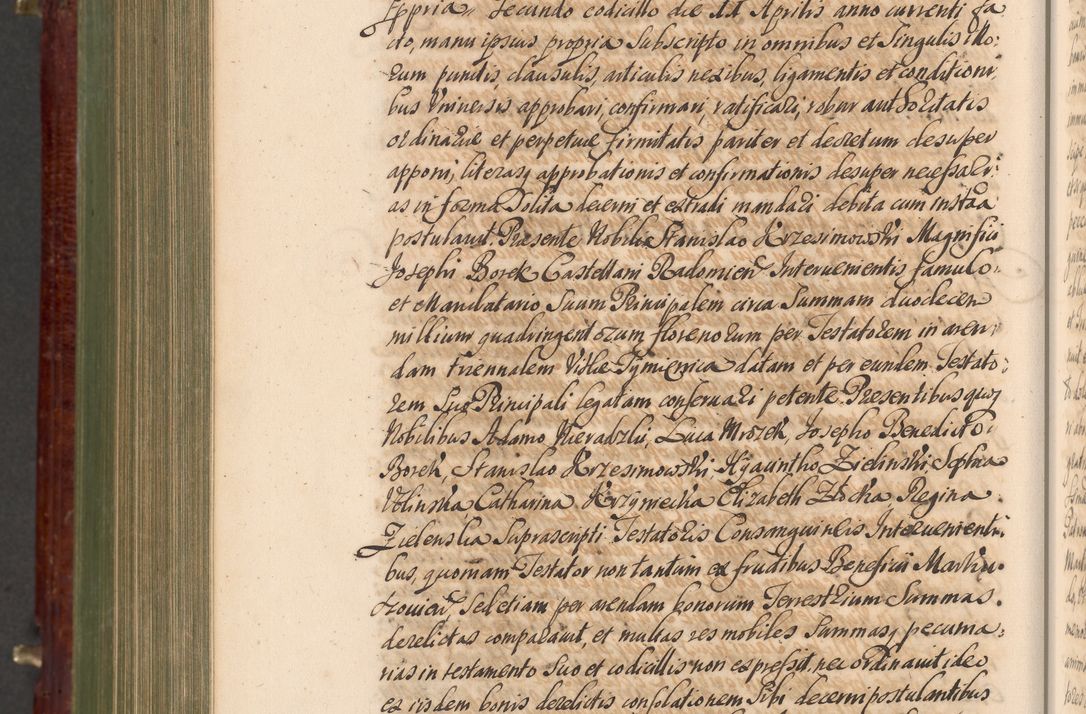 ppria, Secundo codicillo die 11 Aprilis anno currenti fa
cto, manu ipsius propria Subscripto in omnibus et Singulis illo:
rum punctis, clausulis, articulis nexibus, ligamentis et conditioni
bus Universis approbari, confirmari, ratificari, robur authoritatis
ordinariæ et perpetuæ firmitatis pariter et decretum desuper
apponi, literasq approbationis et confirmationis desuper necessari
as in forma Solita decerni et extradi mandari debita cum instãa
postulavit. Præsente Nobili Stanislao Krzesimowski Magnifici
Josephi Borek Castellani Radomien Intervenientis famulo
et Mandatario Suum Principalem circa Summam duodecem
millium quadringentorum florenorum per Testatorem in aren
dam triennalem Villæ Tymienica datam et per eundem Testato
rem Suo Principali legatam conservari petente. Præsentibus quoq
Nobilibus Adamo Nieradzki, Luca Mrozek, Josepho Benedicto
Borek, Stanislao Krzesimowski, Hyacintho Zielinski, Sophia
Wolinska Catharina Krzywiecka Elizabeth Złocka Regina
Zielenska Suprascripti Testatoris Consanguineis Intervenienti
bus, quoniam Testator non tantum ex fructibus Beneficii Markus
zovien Sed etiam per arendam bonorum Terrestrium Summas
derelictas comparavit, et multas res mobiles Summasq pecunia
rias in testamento Suo et codicillis non expressit, nec ordinavit ideo
ex iisdem bonis derelictis consolationem Sibi decerni postulantibus